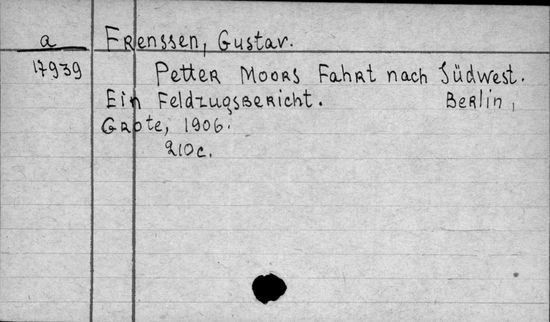 a
Frenssen, Gustav.
17939
Petter Moors Fahrt nach Südwest.
Ein Feldzugsbericht. Berlin,
Grote, 1906.
210c.